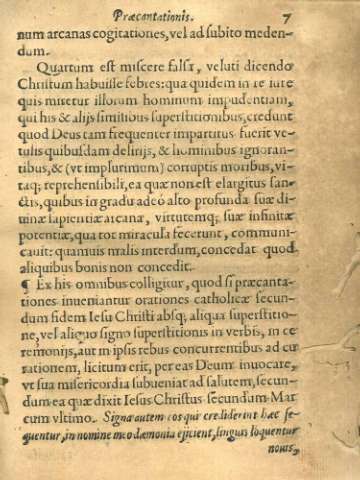 Præcantationis. 7
num arcanas cogitationes, vel ad subito meden-
dum.
Quartum est miscere falsa, veluti dicendo
Christum habuisse febres: qua quidem in re iure
quis miretur illorum hominum impudentiam,
qui his & alijs similibus superstitionibus, credunt
quod Deus tam frequenter impartitus fuerit ve-
tulis quibusdam delirijs, & hominibus ignoran-
tibus, & (vt implurimum) corruptis moribus, vi-
taq; reprehensibili, ea quæ non est elargitus san-
ctis, quibus in gradu adeo alto profunda suæ di-
uinæ sapientiæ arcana, virtutemq; suæ infinitæ
potentiæ, qua tot miracula fecerunt, communi-
cauit: quamuis malis interdum, concedat quod
aliquibus bonis non concedit.
¶ Ex his omnibus colligitur, quod si præcanta-
tiones inueniantur orationes catholicæ secun-
dum fidem Iesu Christi absq; aliqua superstitio-
ne, vel aliquo signo superstitionis in verbis, in ce
remonijs, aut in ipsis rebus concurrentibus ad cu
rationem, licitum erit, per eas Deum inuocare,
vt sua misericordia subueniat ad salutem, secun-
dum ea quæ dixit Iesus Christus secundum Mar
cum vltimo. Signa autem eos qui crediderint hæc se-
quentur, in nomine meo dæmonia ejicient, linguis loquentur
nouis,